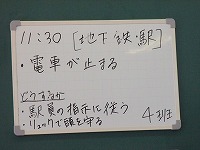 11:30 [地下鉄・駅]
・電車が止まる
どうするか
・駅員の指示に従う
・リュックで頭を守る
4班